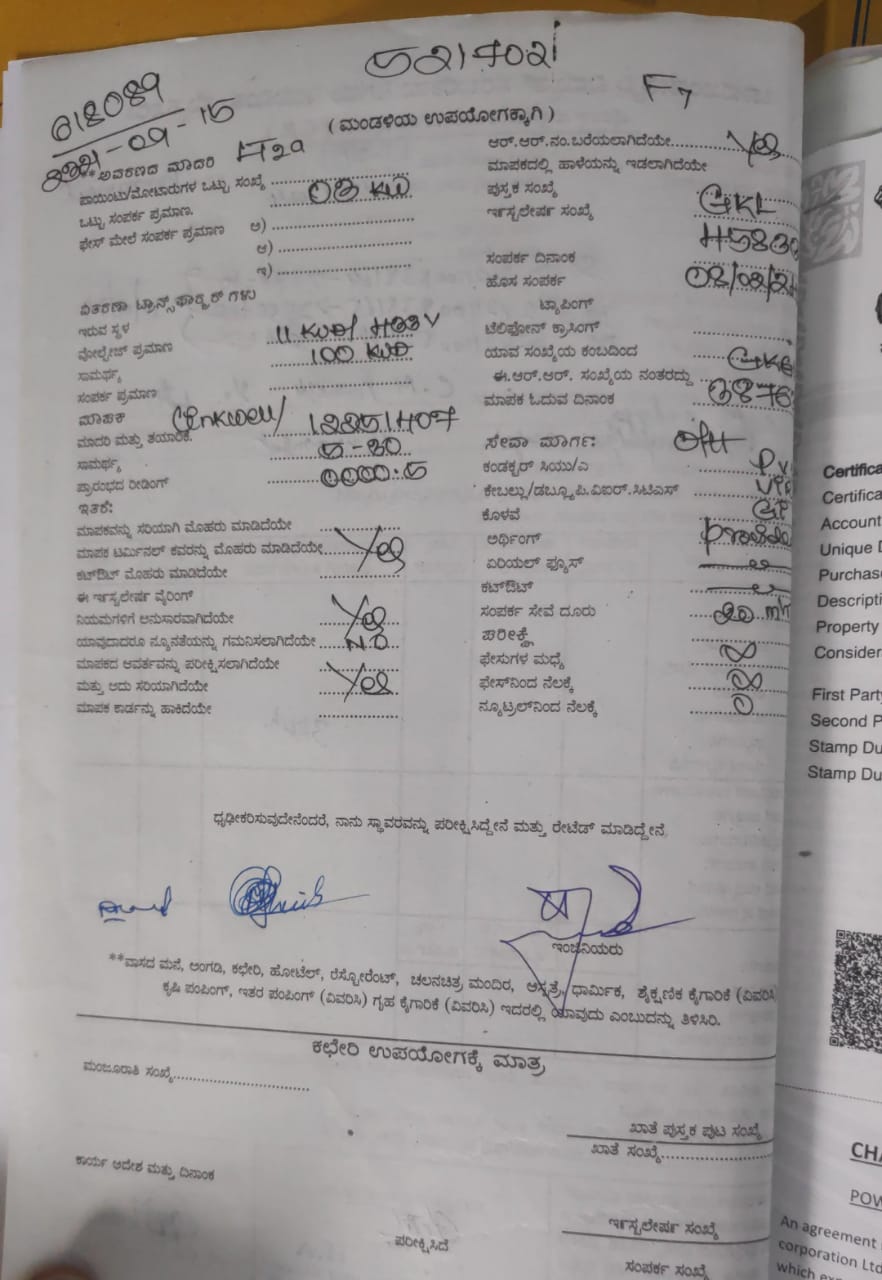 5217021
F7
618089
( ಮಂಡಳಿಯ ಉಪಯೋಗಕ್ಕಾಗಿ )
**ಅವರಣದ ಮಾದರಿ
ಪಾಯಿಂಟು/ಮೋಟಾರುಗಳ ಒಟ್ಟು ಸಂಖ್ಯೆ
ಒಟ್ಟು ಸಂಪರ್ಕ ಪ್ರಮಾಣ. 03 KW
ಫೇಸ್ ಮೇಲೆ ಸಂಪರ್ಕ ಪ್ರಮಾಣ ಅ)
ಆ)
ಇ)
ವಿತರಣಾ ಟ್ರಾನ್ಸ್‌ಫಾರ್ಮರ್ ಗಳು
ಇರುವ ಸ್ಥಳ
ವೋಲ್ಟೇಜ್ ಪ್ರಮಾಣ
ಸಾಮರ್ಥ್ಯ 100
ಸಂಪರ್ಕ ಪ್ರಮಾಣ
ಮಾಪಕ
ಮಾದರಿ ಮತ್ತು ತಯಾರಿಕೆ.
ಸಾಮರ್ಥ್ಯ 5-30
ಪ್ರಾರಂಭದ ರೀಡಿಂಗ್ 0000.5
ಇತರೆ:
ಮಾಪಕವನ್ನು ಸರಿಯಾಗಿ ಮೊಹರು ಮಾಡಿದೆಯೇ
ಮಾಪಕ ಟರ್ಮಿನಲ್ ಕವರನ್ನು ಮೊಹರು ಮಾಡಿದೆಯೇ Yes
ಕಟ್‌ಔಟ್ ಮೊಹರು ಮಾಡಿದೆಯೇ
ಈ ಇನ್ಸ್ಟಲೇಷನ್ ವೈರಿಂಗ್
ನಿಯಮಗಳಿಗೆ ಅನುಸಾರವಾಗಿದೆಯೇ Yes
ಯಾವುದಾದರೂ ನ್ಯೂನತೆಯನ್ನು ಗಮನಿಸಲಾಗಿದೆಯೇ NO
ಮಾಪಕದ ಆವರ್ತವನ್ನು ಪರೀಕ್ಷಿಸಲಾಗಿದೆಯೇ
ಮತ್ತು ಅದು ಸರಿಯಾಗಿದೆಯೇ Yes
ಮಾಪಕ ಕಾರ್ಡನ್ನು ಹಾಕಿದೆಯೇ
ಆರ್.ಆರ್.ನಂ.ಬರೆಯಲಾಗಿದೆಯೇ Yes
ಮಾಪಕದಲ್ಲಿ ಹಾಳೆಯನ್ನು ಇಡಲಾಗಿದೆಯೇ
ಪುಸ್ತಕ ಸಂಖ್ಯೆ
ಇನ್ಸ್ಟಲೇಷನ್ ಸಂಖ್ಯೆ GKL
ಸಂಪರ್ಕ ದಿನಾಂಕ
ಹೊಸ ಸಂಪರ್ಕ
ಟ್ಯಾಪಿಂಗ್
ಟೆಲಿಫೋನ್ ಕ್ರಾಸಿಂಗ್
ಯಾವ ಸಂಖ್ಯೆಯ ಕಂಬದಿಂದ
ಈ.ಆರ್.ಆರ್. ಸಂಖ್ಯೆಯ ನಂತರದ್ದು
ಮಾಪಕ ಓದುವ ದಿನಾಂಕ
ಸೇವಾ ಮಾರ್ಗ: OH
ಕಂಡಕ್ಟರ್ ಸಿಯು/ಎ
ಕೇಬಲ್ಲು/ಡಬ್ಲ್ಯೂ.ಪಿ.ವಿಐರ್.ಸಿಟಿಎಸ್
ಕೊಳವೆ
ಅರ್ಥಿಂಗ್
ಏರಿಯಲ್ ಫ್ಯೂಸ್
ಕಟ್‌ಔಟ್
ಸಂಪರ್ಕ ಸೇವೆ ದೂರು
ಪರೀಕ್ಷೆ
ಫೇಸುಗಳ ಮಧ್ಯೆ
ಫೇಸ್‌ನಿಂದ ನೆಲಕ್ಕೆ
ನ್ಯೂಟ್ರಲ್‌ನಿಂದ ನೆಲಕ್ಕೆ
ಧೃಢೀಕರಿಸುವುದೇನೆಂದರೆ, ನಾನು ಸ್ಥಾವರವನ್ನು ಪರೀಕ್ಷಿಸಿದ್ದೇನೆ ಮತ್ತು ರೇಟೆಡ್ ಮಾಡಿದ್ದೇನೆ
ಇಂಜಿನಿಯರು
**ವಾಸದ ಮನೆ, ಅಂಗಡಿ, ಕಛೇರಿ, ಹೋಟೆಲ್, ರೆಸ್ಟೋರೆಂಟ್, ಚಲನಚಿತ್ರ ಮಂದಿರ, ಆಸ್ಪತ್ರೆ, ಧಾರ್ಮಿಕ, ಶೈಕ್ಷಣಿಕ ಕೈಗಾರಿಕೆ (ವಿವರಿಸಿ
ಕೃಷಿ ಪಂಪಿಂಗ್, ಇತರ ಪಂಪಿಂಗ್ (ವಿವರಿಸಿ) ಗೃಹ ಕೈಗಾರಿಕೆ (ವಿವರಿಸಿ) ಇದರಲ್ಲಿ ಯಾವುದು ಎಂಬುದನ್ನು ತಿಳಿಸಿರಿ.
ಕಛೇರಿ ಉಪಯೋಗಕ್ಕೆ ಮಾತ್ರ
ಮಂಜೂರಾತಿ ಸಂಖ್ಯೆ
ಖಾತೆ ಪುಸ್ತಕ ಪುಟ ಸಂಖ್ಯೆ
ಖಾತೆ ಸಂಖ್ಯೆ
ಕಾರ್ಯ ಆದೇಶ ಮತ್ತು ದಿನಾಂಕ
ಇನ್ಸ್ಟಲೇಷನ್ ಸಂಖ್ಯೆ
ಪರೀಕ್ಷಿಸಿದೆ
ಸಂಪರ್ಕ ಸಂಖ್ಯೆ
Certifica
Certifica
Account
Unique D
Purchase
Descripti
Property
Consider
First Party
Second P
Stamp Du
Stamp Du
CHA
POW
An agreement
corporation Ltd
which